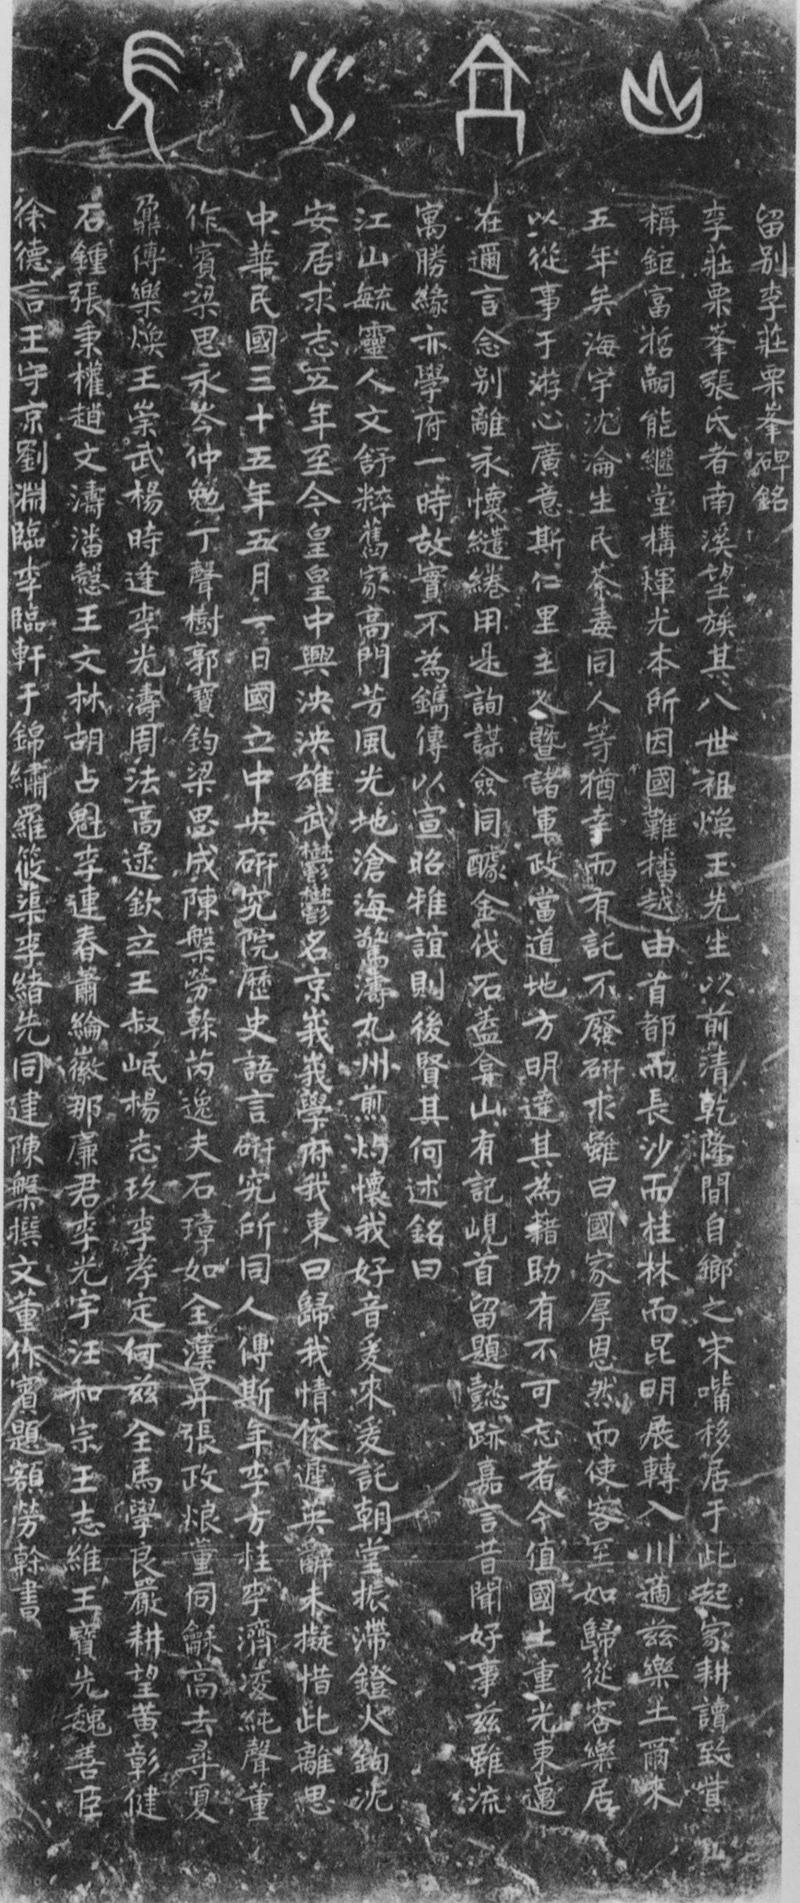 山高水長
留別李莊栗峯碑銘
李莊栗峯張氏者南溪望族其八世祖煥玉先生以前清乾隆間自鄉之宋嘴移居于此起家耕讀致貲
稱鉅富哲嗣能繼堂構輝光本所因國難播越由首都而長沙而桂林而昆明展轉入川適茲樂土爾來
五年矣海宇沈淪生民荼毒同人等猶幸而有託不廢研求雖曰國家厚恩然而使客至如歸從容樂居
以從事于游心廣意斯仁里主人暨諸軍政當道地方明達其為藉助有不可忘者今值國土重光東邁
在邇言念別離永懷繾綣用是詢謀僉同醵金伐石蓋弇山有記峴首留題懿跡嘉言昔聞好事茲雖流
寓勝緣亦學府一時故實不為鐫傳以宣昭雅誼則後賢其何述銘曰
江山毓靈人文舒粹舊家高門芳風光地滄海驚濤九州煎灼懷我好音爰來爰託朝堂振滯鐙火鉤沈
安居求志五年至今皇皇中興泱泱雄武鬱鬱名京峩峩學府我東曰歸我情依遲英辭未擬惜此離思
中華民國三十五年五月一日國立中央研究院歷史語言研究所同人傅斯年李方桂李濟凌純聲董
作賓梁思永岑仲勉丁聲樹郭寶鈞梁思成陳槃勞榦芮逸夫石璋如全漢昇張政烺董同龢高去尋夏
鼐傅樂煥王崇武楊時逢李光濤周法高逯欽立王叔岷楊志玖李孝定何茲全馬學良嚴耕望黃彰健
石鍾張秉權趙文濤潘慤王文林胡占魁李連春蕭綸徽那廉君李光宇汪和宗王志維王寶先魏善臣
徐德言王守京劉淵臨李臨軒于錦繡羅筱蕖李緒先同建陳槃撰文董作賓題額勞榦書